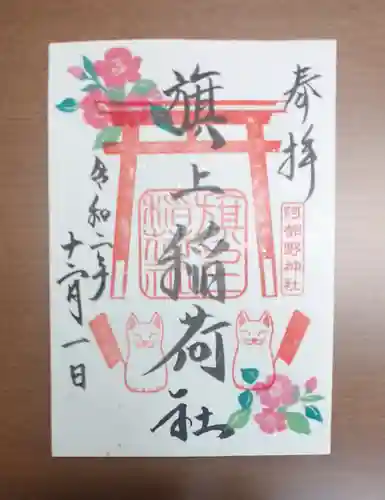 奉拝
阿部野神社
旗上稲荷社
令和二年
十二月一日